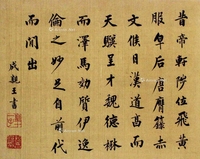 昔帝軒陟位飛黃
服皁后唐膺籙赤
文候日漢道高而
天驥呈才魏德楙
而澤馬効質伊逸
倫之妙足自前代
而間出
成親王書